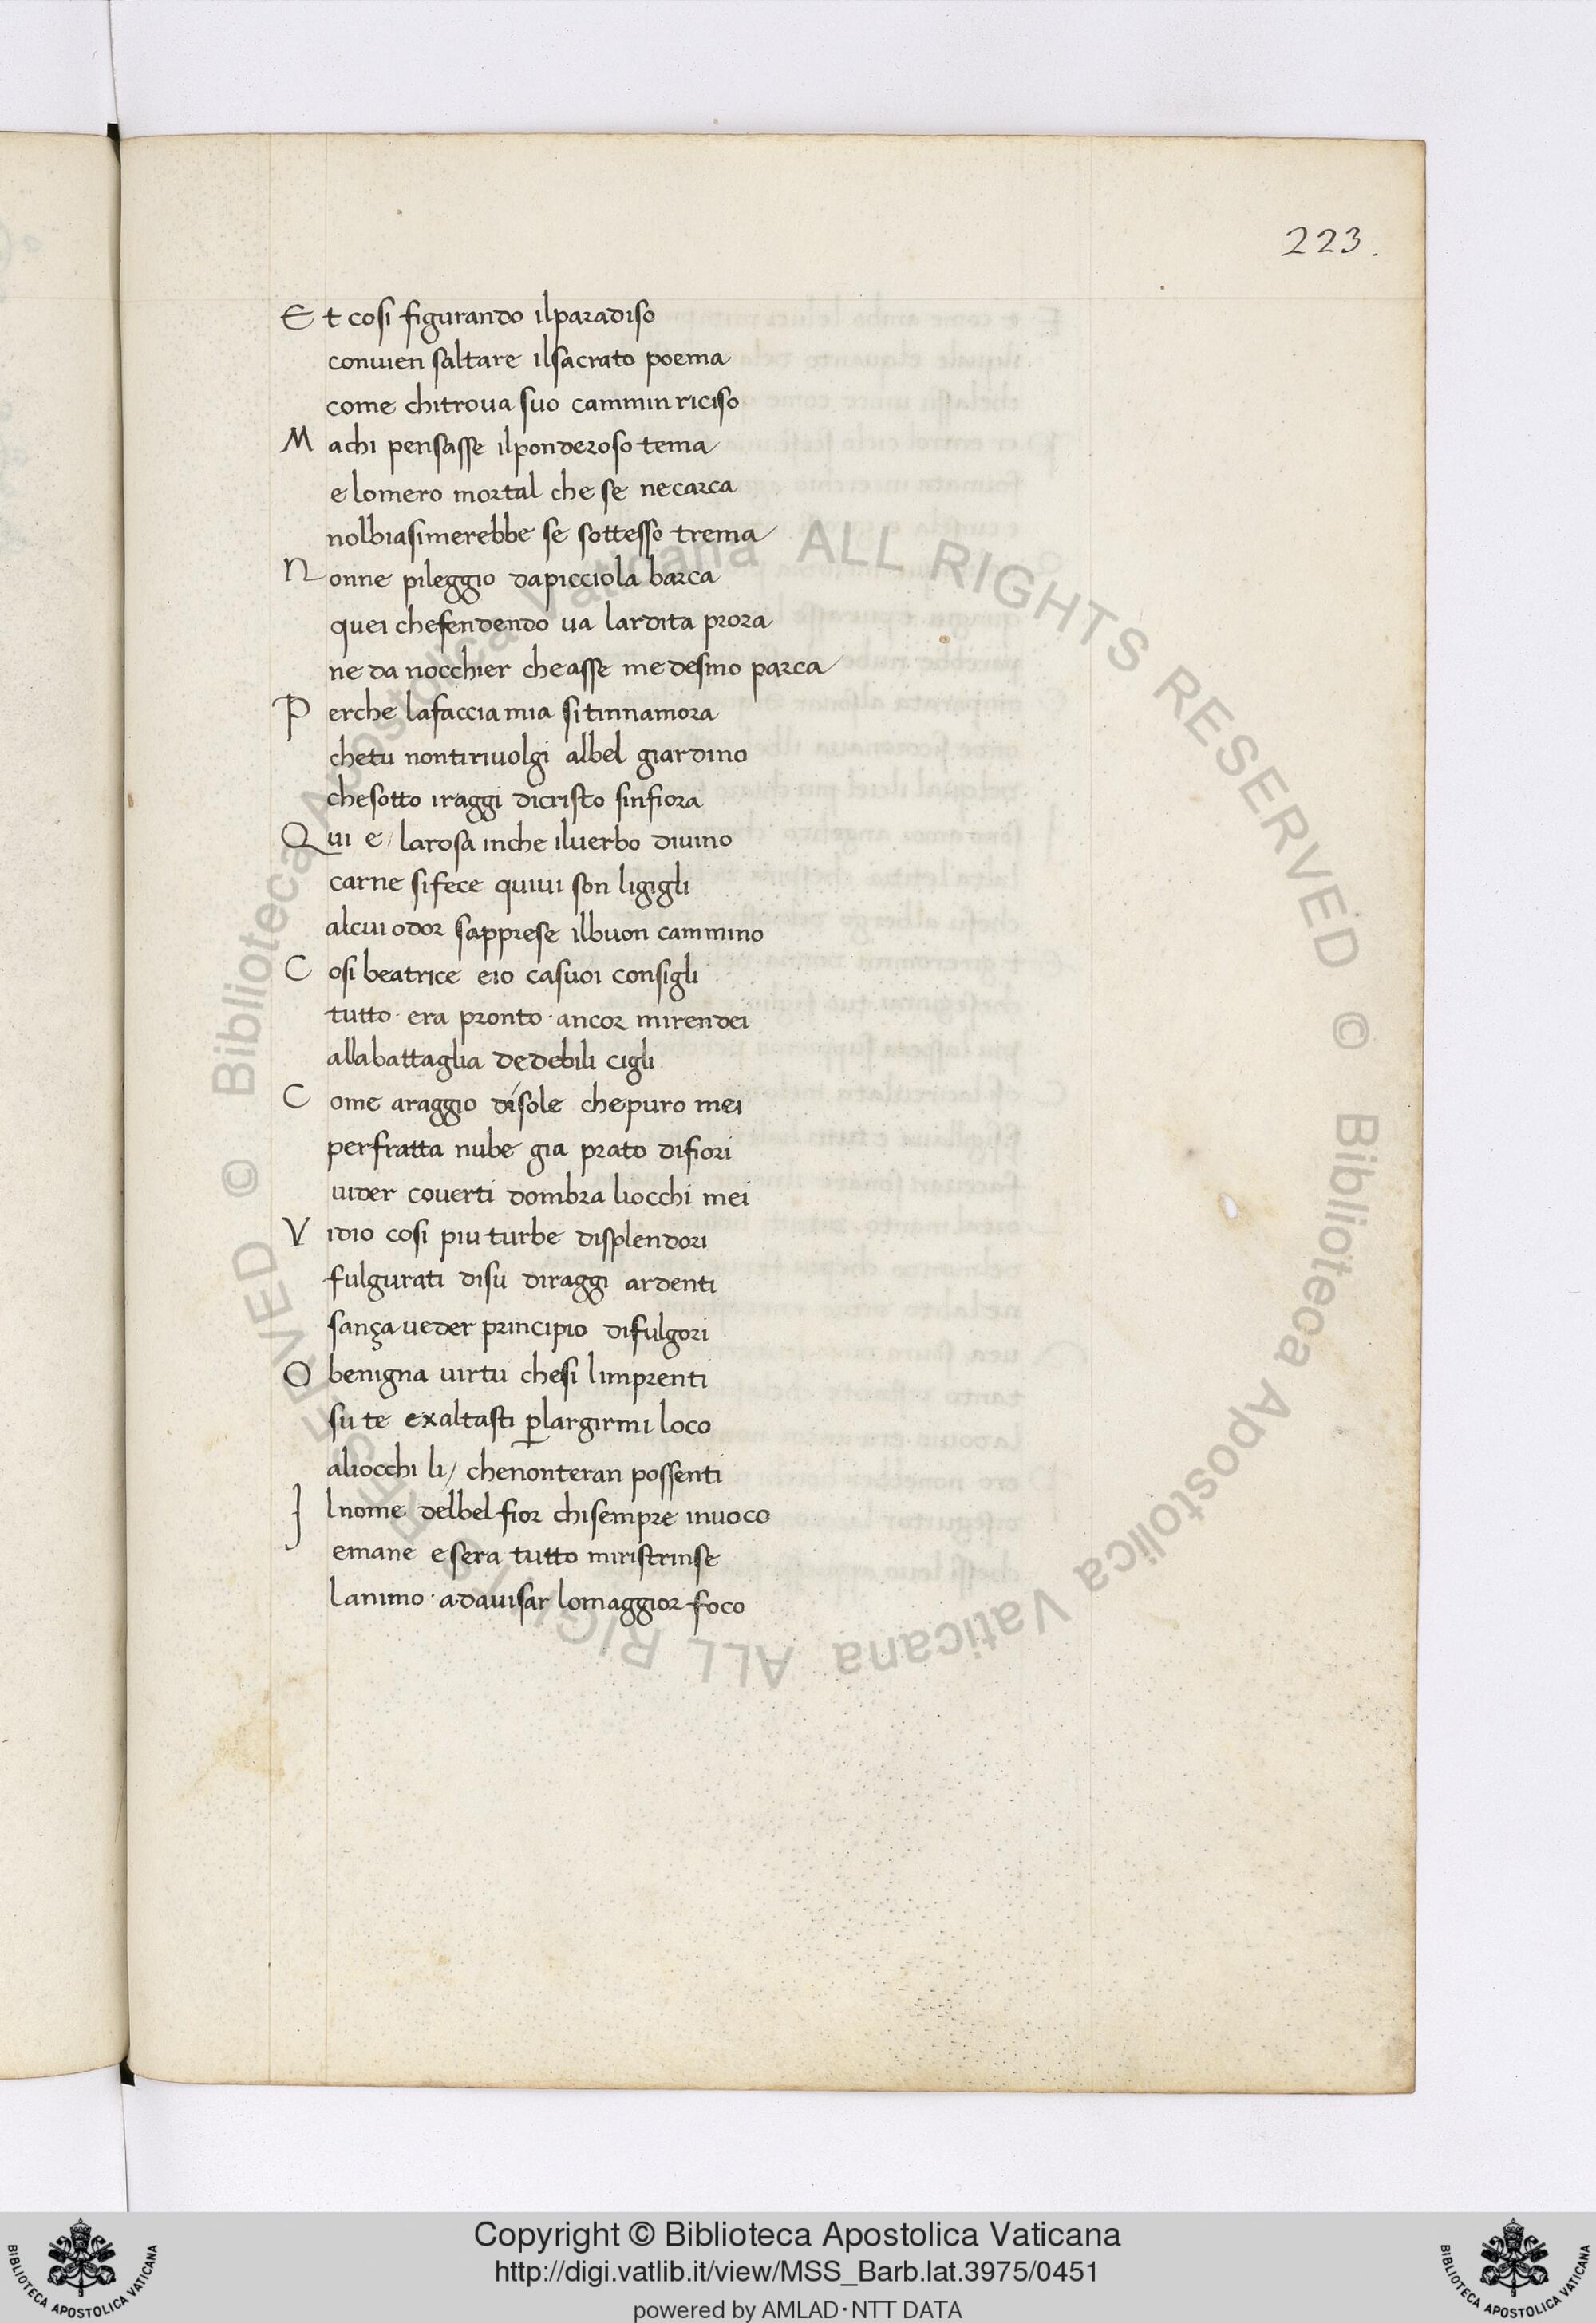 223.
Et cosi figurando ilparadiso
conuien saltare ilsacrato poema
come chitroua suo cammin riciso
Machi pensasse ilponderoso tema
e lomero mortal che se necarca
nolbiasimerebbe se sottesso trema
Nonne pileggio dapicciola barca
quei chefendendo ua lardita prora
ne da nocchier cheasse medesmo parca
Perche lafaccia mia sitinnamora
chetu nontiriuolgi albel giardino
chesotto iraggi dicristo sinfiora
Qui e / larosa inche iluerbo diuino
carne sifece quiui son ligigli
alcui odor sapprese ilbuon cammino
Cosi beatrice eio casuoi consigli
tutto · era pronto · ancor mirendei
allabattaglia dedebili cigli
Come araggio disole chepuro mei
perfratta nube gia prato difiori
uider couerti dombra liocchi mei
Vidio cosi piu turbe displendori
fulgurati disu diraggi ardenti
sança ueder principio difulgori
O benigna uirtu chesi limprenti
su te exaltasti ꝑlargirmi loco
aliocchi li / chenonteran possenti
Ilnome delbel fior chisempre inuoco
emane esera tutto miristrinse
lanimo · adauisar lomaggior foco
© Biblioteca Apostolica Vaticana ALL RIGHTS RESERVED © Biblioteca Apostolica Vaticana ALL RIGHTS RESERVED
Copyright © Biblioteca Apostolica Vaticana
http://digi.vatlib.it/view/MSS_Barb.lat.3975/0451
powered by AMLAD·NTT DATA
BIBLIOTECA APOSTOLICA VATICANA
BIBLIOTECA APOSTOLICA VATICANA